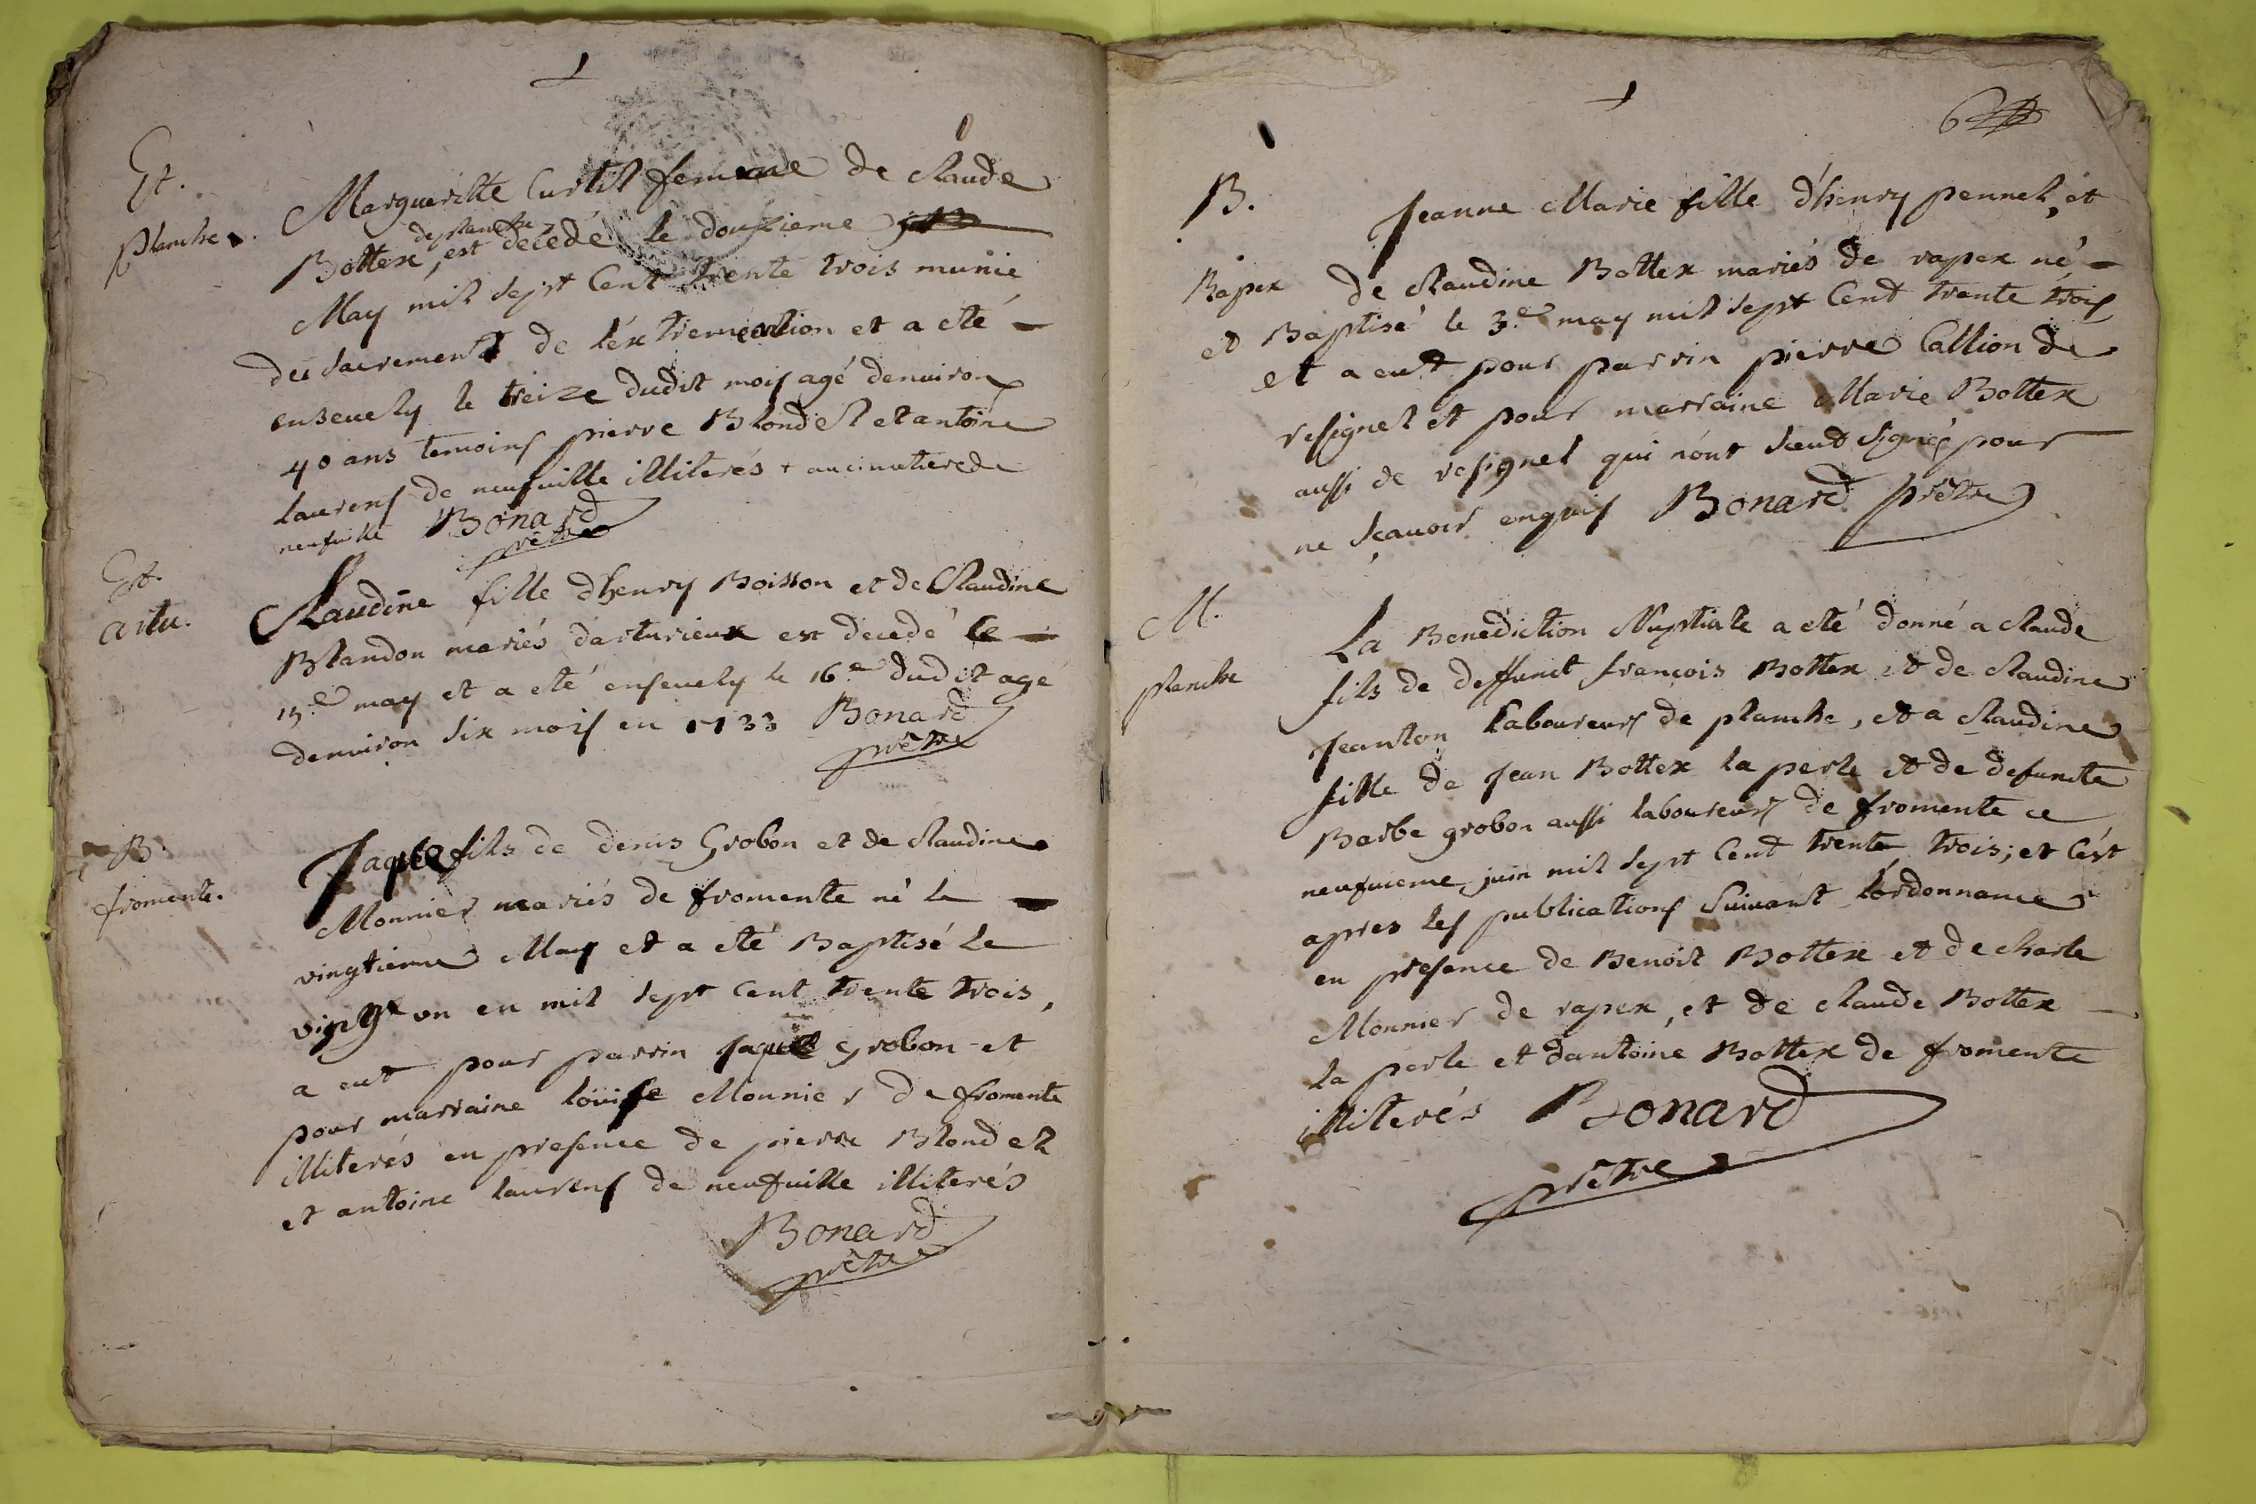 Et.
planche.
Margueritte Curtil femme de Claude
Bottex, de planche est décédé le douzieme
May mil sept Cent trente trois munie
des sacrements de l'extremeontion et a eté
ensevely le treize dudit mois agé denviron
40 ans temoins pierre Blondel et antoine
laurens de neufville illiterés + au cimetiere de
neufville Bonard
prêtre
Et.
artu.
Claudine fille dhenry Boisson et de Claudine
Blandon mariés darturieux est decedé le
15.e may et a eté ensevely le 16.e dudit agé
denviron six mois en 1733 Bonard
prêtre
B.
fromente.
Jaque fils de denis Grobon et de Claudine
Monnier mariés de fromente né le
vingtieme May et a eté Baptisé le
vingt un en mil sept Cent trente trois,
a eut pour parrin Jaque grobon et
pour marraine louise Monnier De fromente
illiterés en presence de pierre Blondel
et antoine laurens de neufville illiterés
Bonard
prêtre
6
B.
Rapex
Jeanne Marie fille d'henry pennel, et
de Claudine Bottex mariés de rapex né
et Baptisé le 3.e may mil sept Cent trente trois
et a eut pour parrin pierre Callion de
resignel et pour marraine Marie Bottex
aussi de resignel qui n'ont sceut signé pour
ne sçavoir enquis Bonard prêtre
M.
planche
La Benediction Nuptiale a eté donné a Claude
fils de deffunct francois Bottex et de Claudine
Jeanton laboureurs de planche, et a Claudine
fille de Jean Bottex la perle et de defuncte
Barbe grobon aussi laboureurs de fromente ce
neufvieme juin mil sept Cent trente trois; et c'est
apres les publications suivant l'ordonnance
en presence de Benoit Bottex et de Charle
Monnier de rapex, et de Claude Bottex
la perle et dantoine Bottex de fromente
illiterés Bonard
prêtre